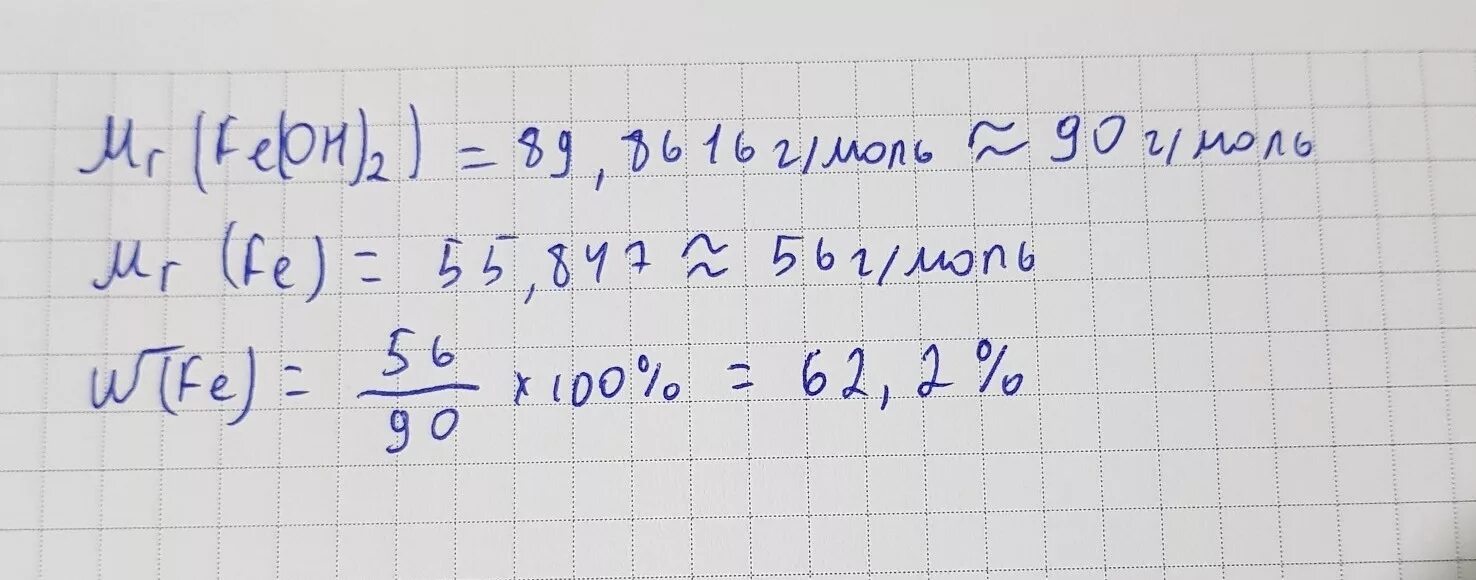 Mr (Fe(OH)2) = 89,8616 г/моль ≈ 90 г/моль
Mr (Fe) = 55,847 ≈ 56 г/моль
W(Fe) = 56/90 × 100% = 62,2%